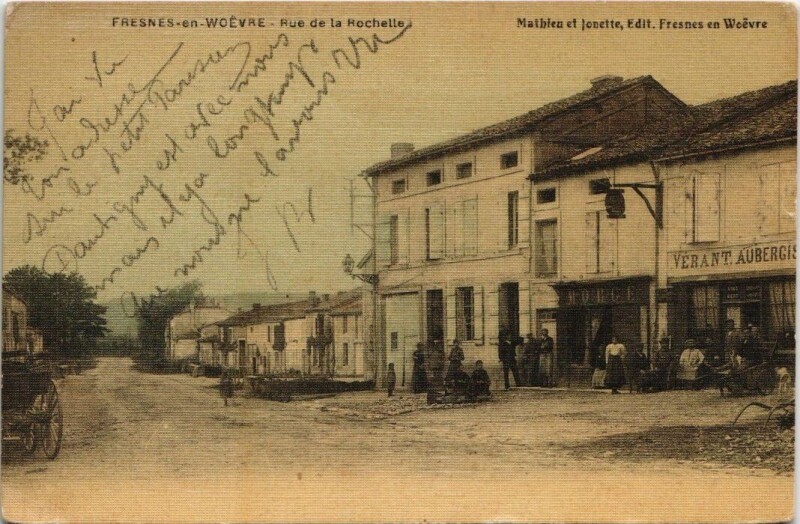 FRESNES-en-WOËVRE - Rue de la Rochelle
Mathieu et Jonette, Edit. Fresnes en Woëvre
J'ai vu
ton adresse
sur le petit Parisien
Dautigny est avec nous
mais il y a longtemps
que nous ne l'avons vu
VÉRANT. AUBERGIS
MORGÉ